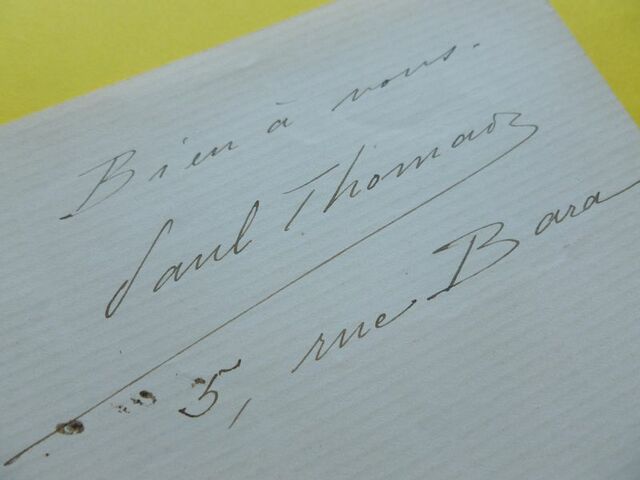 Bien à vous.
Paul Thomas
5, rue Bara